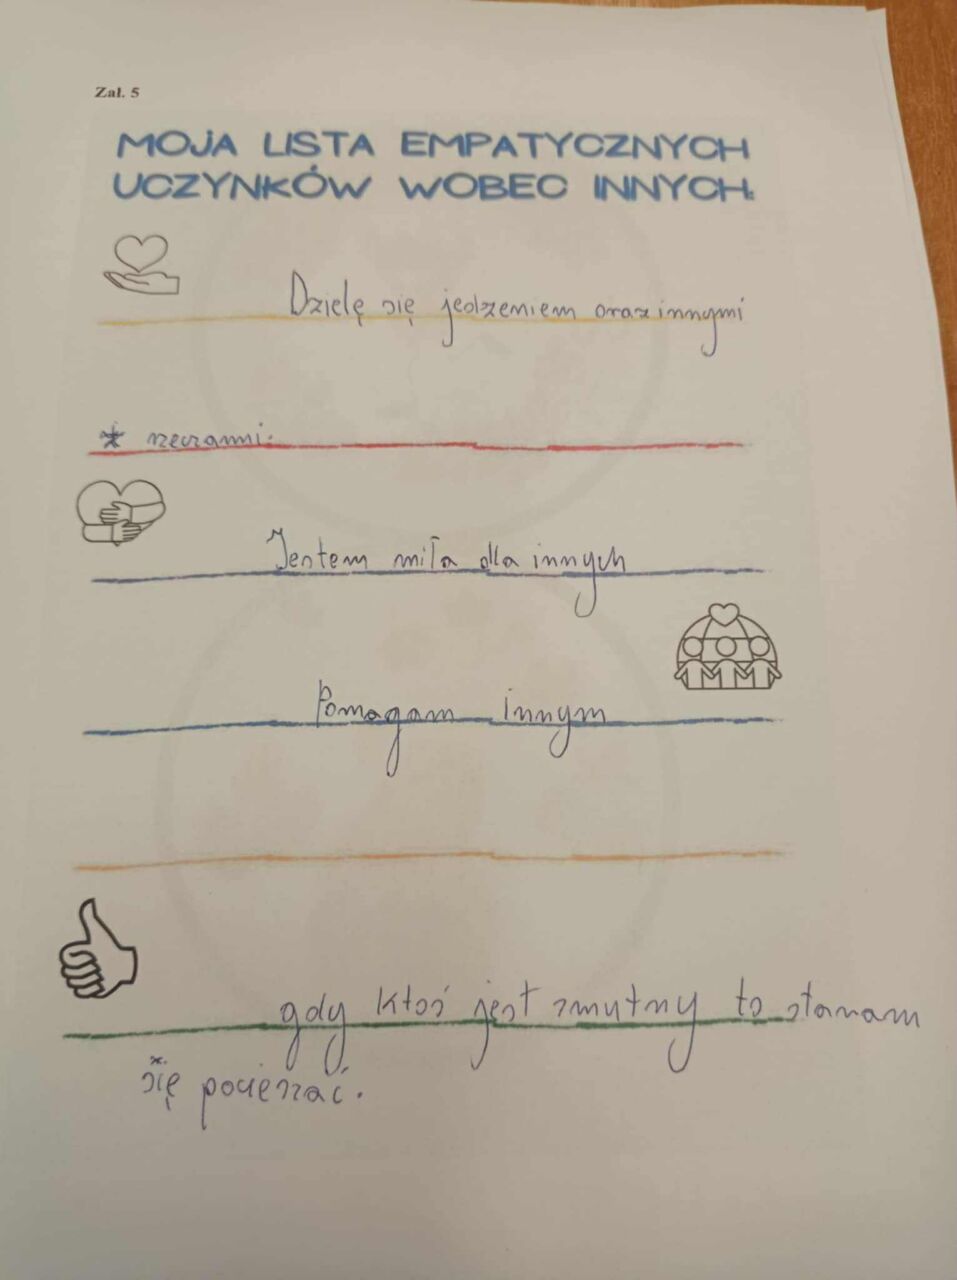 Zał. 5
MOJA LISTA EMPATYCZNYCH
UCZYNKÓW WOBEC INNYCH:
Dzielę się jedzeniem oraz innymi
* rzeczami.
Jestem miła dla innych
Pomagam innym
gdy ktoś jest smutny to staram
się pocieszać.